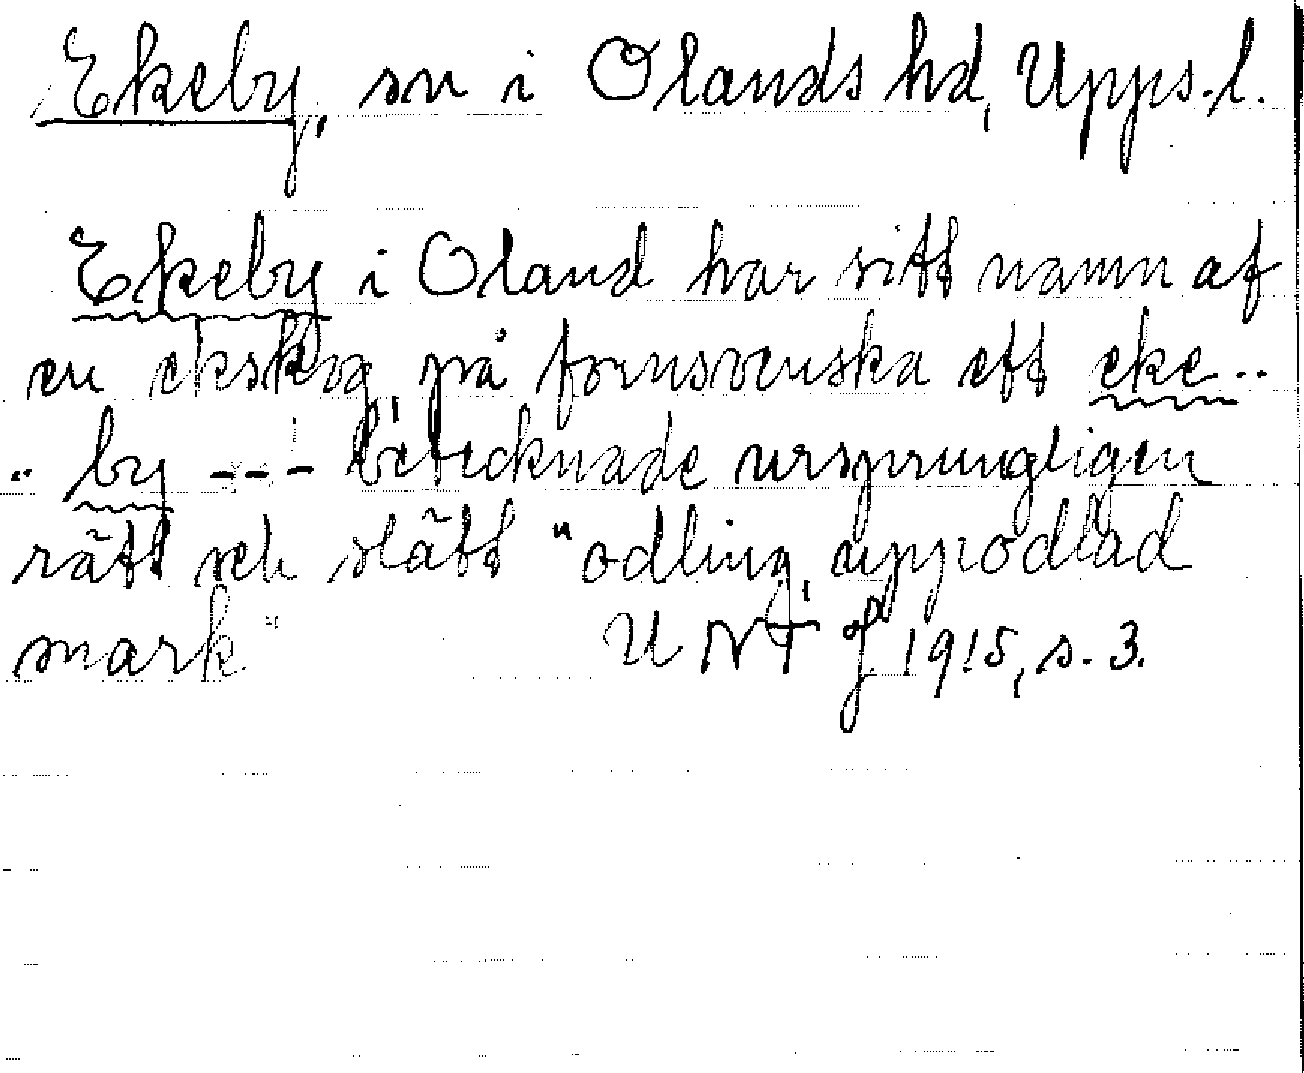 Ekeby, sn i Olands hd, Upps. l.
Ekeby i Oland har sitt namn af
en ekskog, på fornsvenska ett eke..
.. by --- betecknade ursprungligen
rätt och slätt "odling, uppodlad
mark" UNT 1915, s. 3.